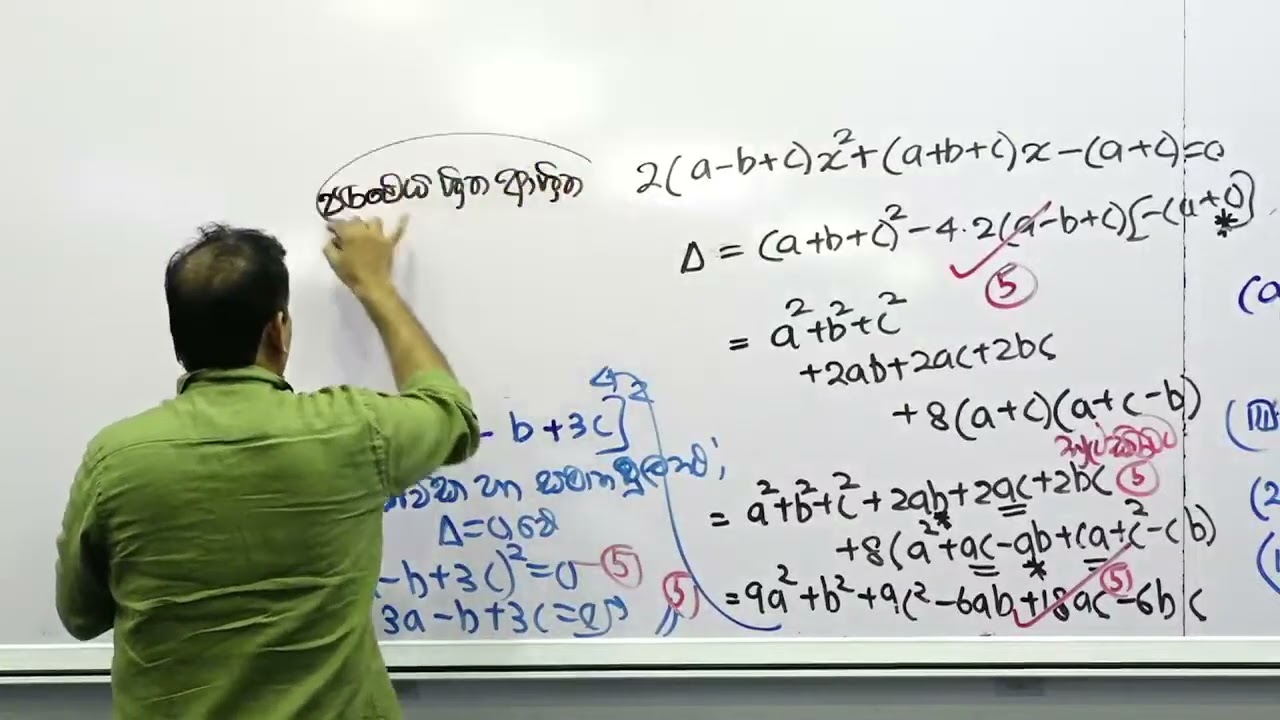 2(a-b+c)x²+(a+b+c)x-(a+c)=0
Δ = (a+b+c)²-4·2(a-b+c)[-(a+c)]
5
= a²+b²+c²
+2ab+2ac+2bc
+8(a+c)(a+c-b)
= a²+b²+c²+2ab+2ac+2bc 5
+8(a²+ac-ab+ca+c²-cb)
=9a²+b²+9c²-6ab+18ac-6bc 5
- b+3c]²
හා සමාන
Δ=0
-b+3c)²=0 5
3a-b+3c=0
5
(a
(III
(2
(1